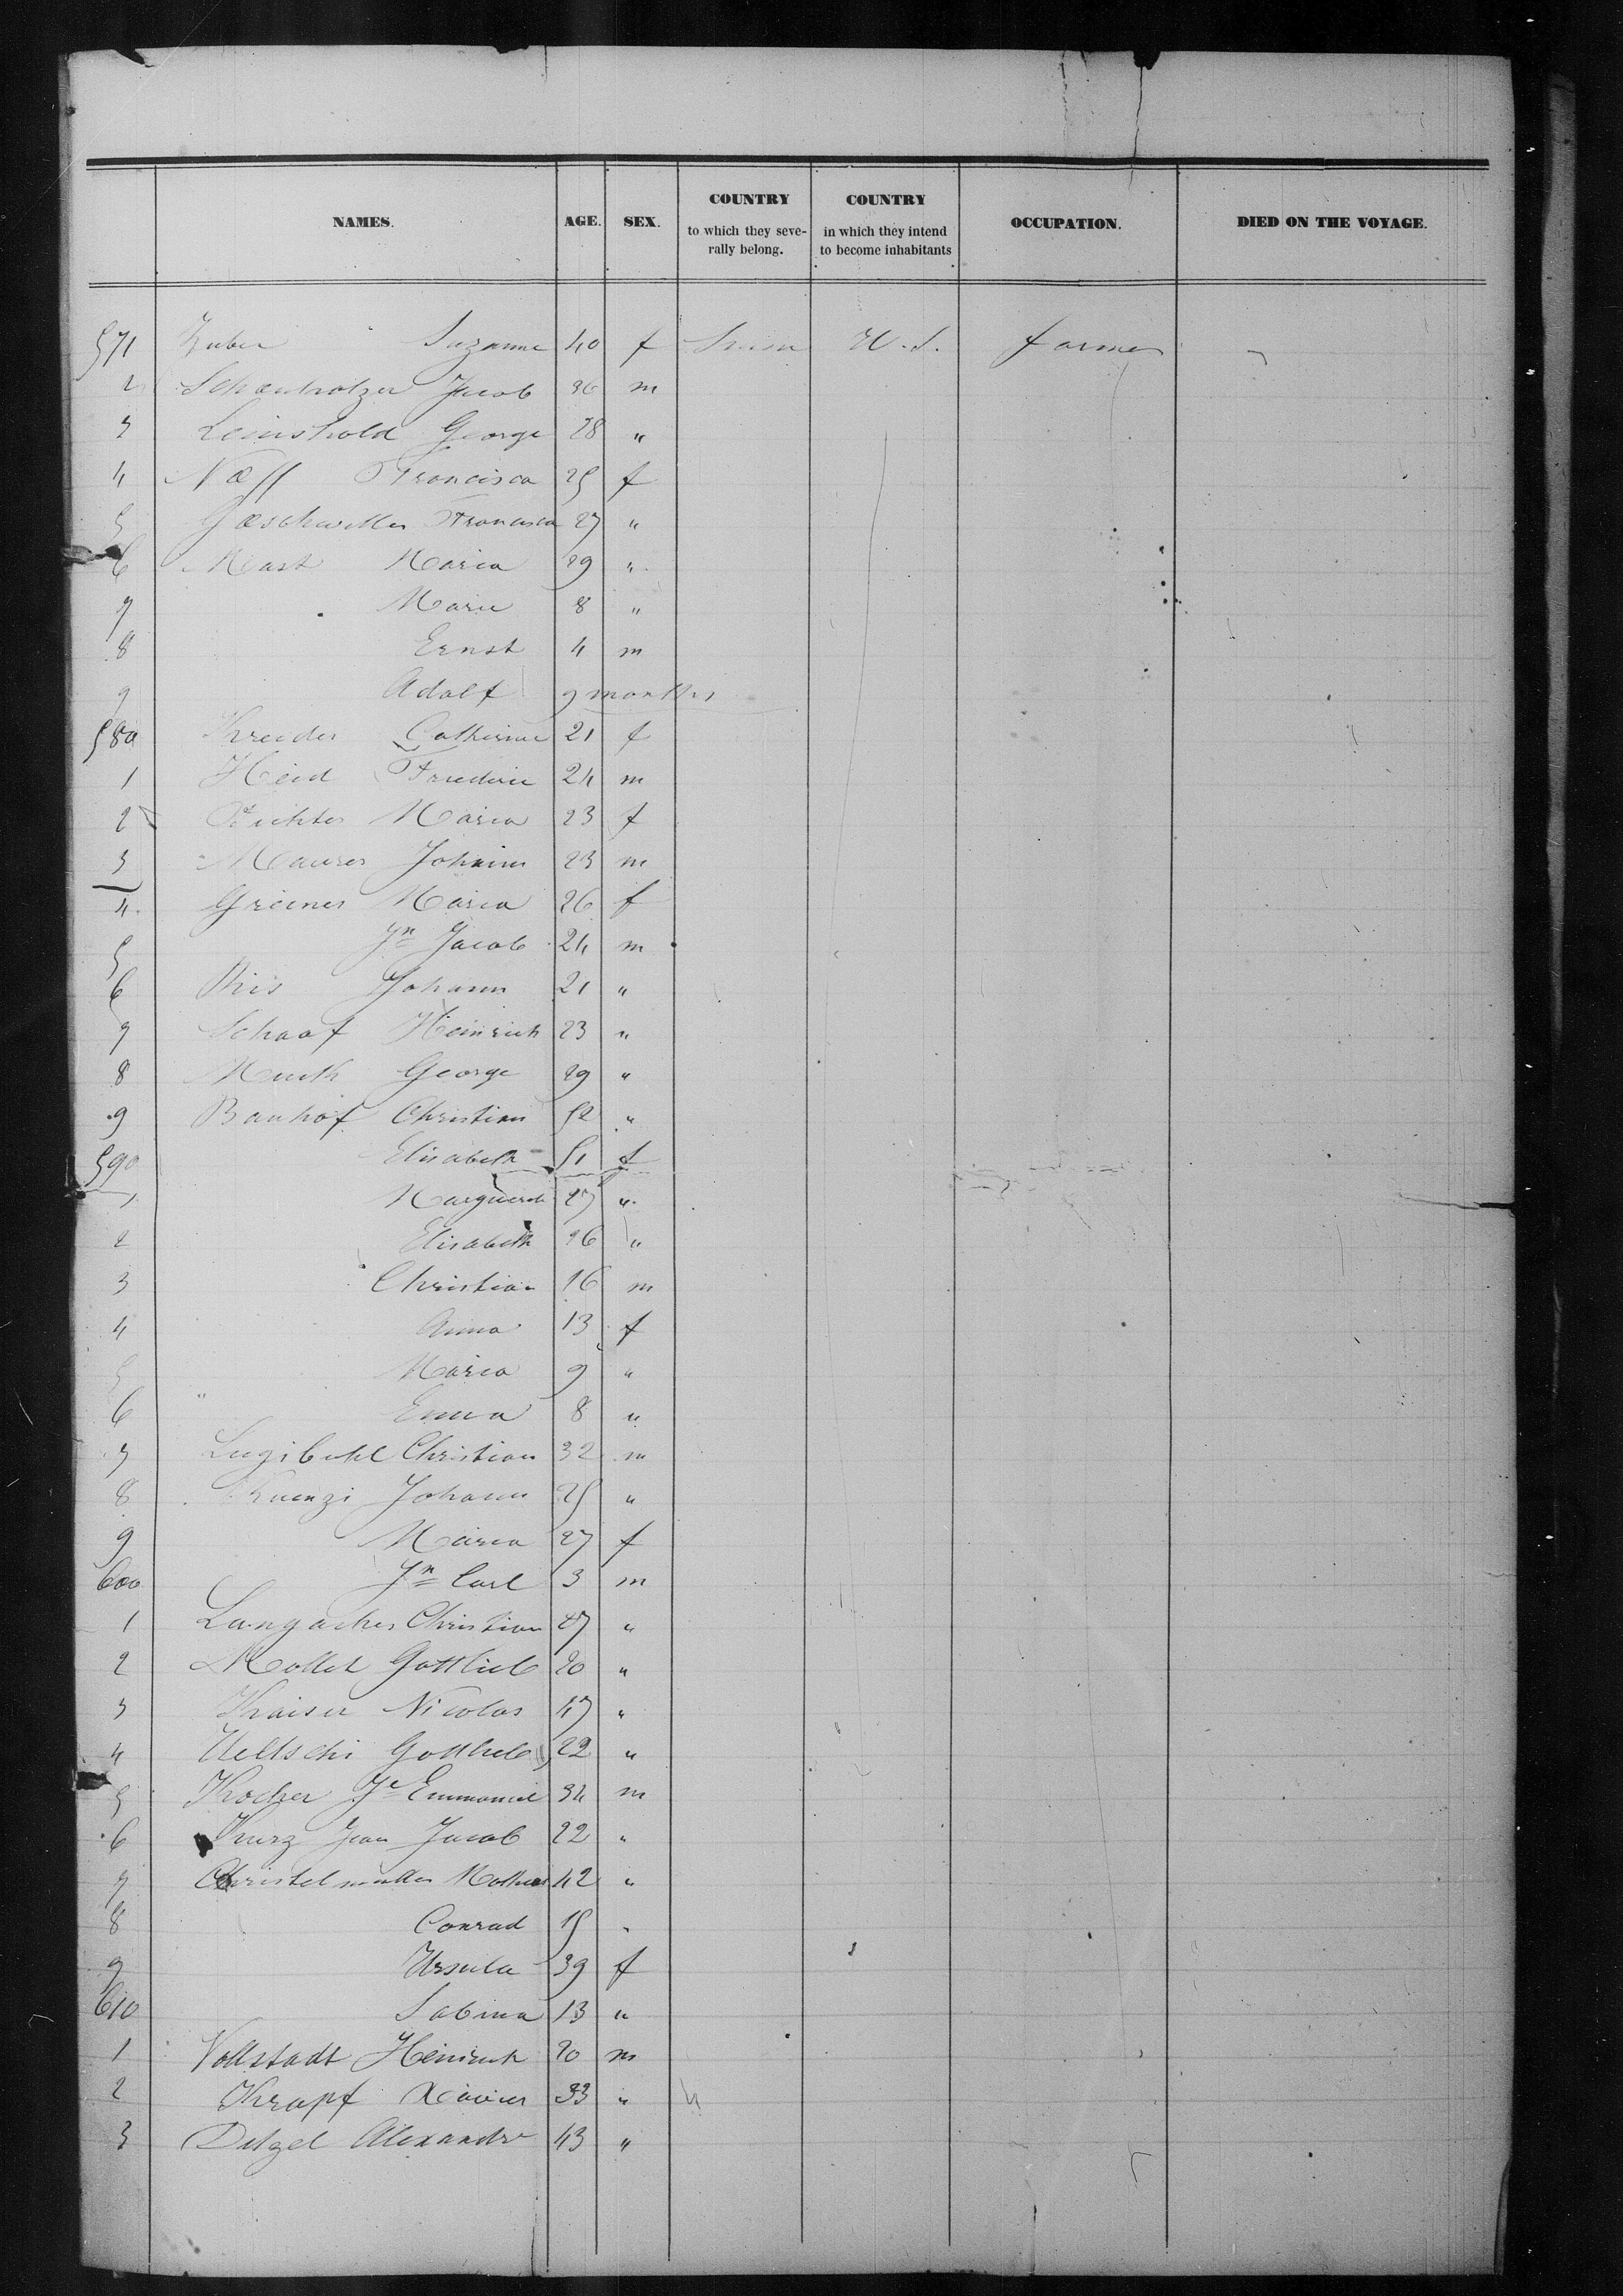 NAMES. AGE. SEX. COUNTRY to which they seve-rally belong. COUNTRY in which they intend to become inhabitants OCCUPATION. DIED ON THE VOYAGE.
571 Zuber Suzanne 40 f U.S. farmer
2 Jacob 36 m
3 Leinshold George 28 "
4 Naeff Francisca 25 f
5 Francisca 27 "
6 Mast Maria 29 "
7 Marie 8 "
8 Ernst 4 m
9 Adolf 9 months
580 Kreider Catherine 21 f
1 Heid 24 m
2 Maria 23 f
3 Maurer Johann 23 m
4 Greiner Maria 26 f
5 Jn Jacob 24 m
6 Johann 21 "
7 Schaaf Heinrich 23 "
8 George 29 "
9 Banhof Christian 52 "
590 Elisabeth 51 f
1 27 "
2 Elisabeth 26 "
3 Christian 16 m
4 Anna 13 f
5 Maria 9 "
6 " Emma 8 "
7 Lugibuhl Christian 32 m
8 Kuenzi Johann 25 "
9 Maria 27 f
600 Jn Carl 3 m
1 Langacher Christian "
2 Mollet Gottlieb 20 "
3 Kaiser Nicolas 47 "
4 Ueltschi Gottlieb 22 "
5 Kocher Je Emmanuel 34 m
6 Kurz Jean Jacob 22 "
7 Christelmuller 42 "
8 Conrad 15 "
9 Ursula 39 f
610 Sabina 13 "
1 Vollstadt Heinrich 20 m
2 Krapf Xavier 33 "
3 Alexandre 43 "